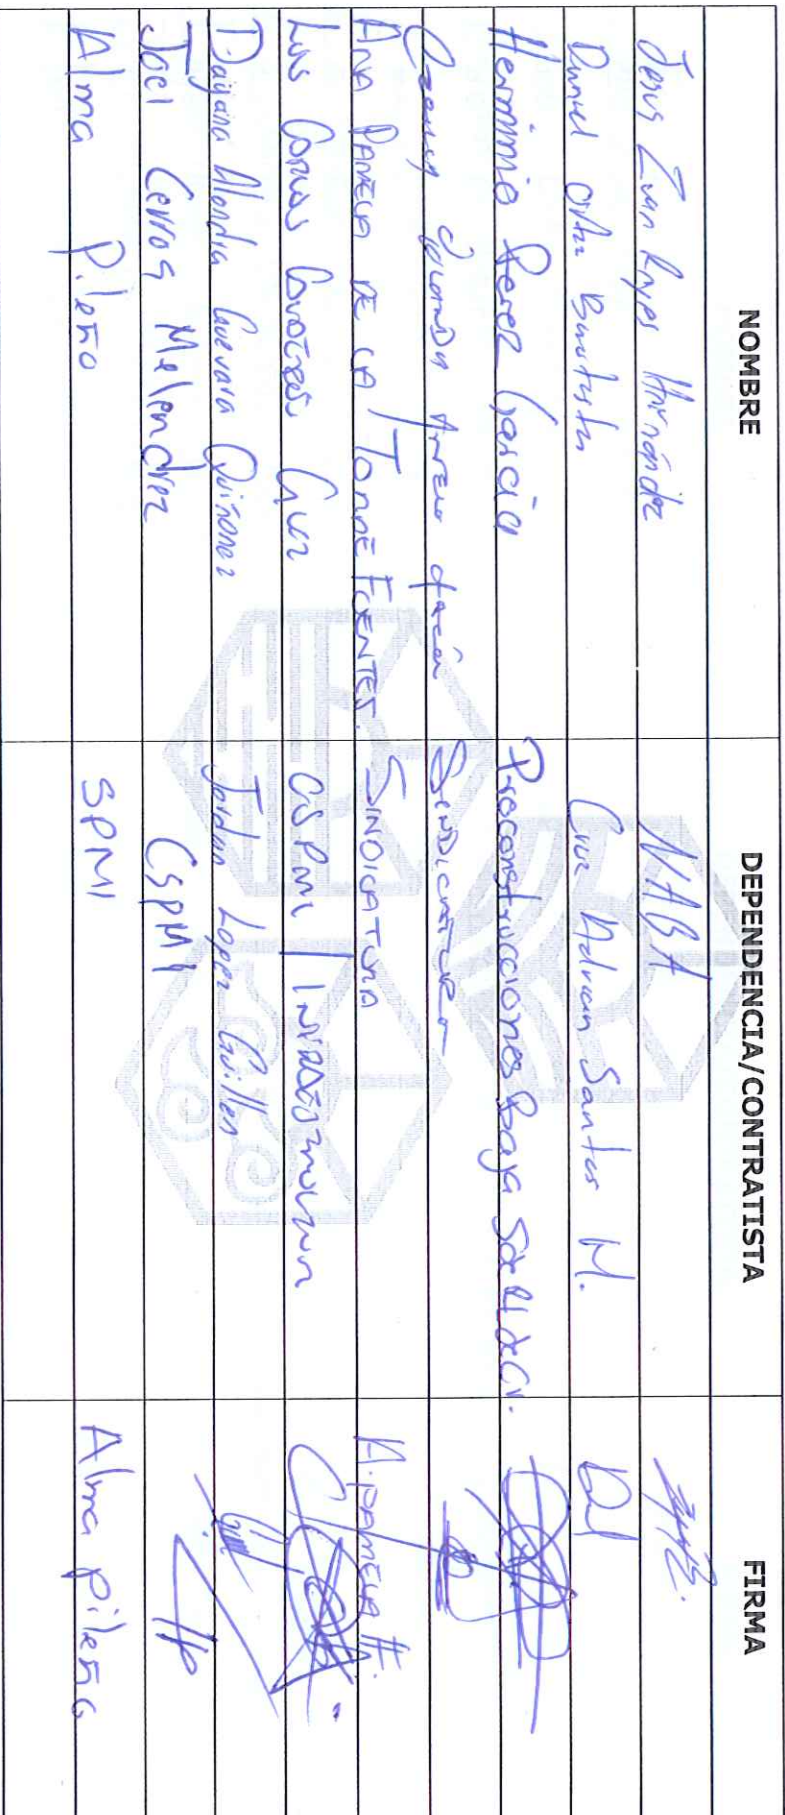 NOMBRE DEPENDENCIA/CONTRATISTA FIRMA
Jesus Ivan Reyes Hernández NABA
Daniel Ortiz Bautista Cruz Adrian Santos M.
Herminio Perez Garcia Proconstrucciones Baja S de RL de CV.
Yolanda Sindicatura
Ana Pamela de la Torre Fuentes. Sindicatura A. Pamela
Luis Cruz CSPMI
Dayana Guevara Quiñonez Jordan Lopez Guillen
Joel Cerros Melendrez CSPMI
Alma Pileño SPMI Alma pileño